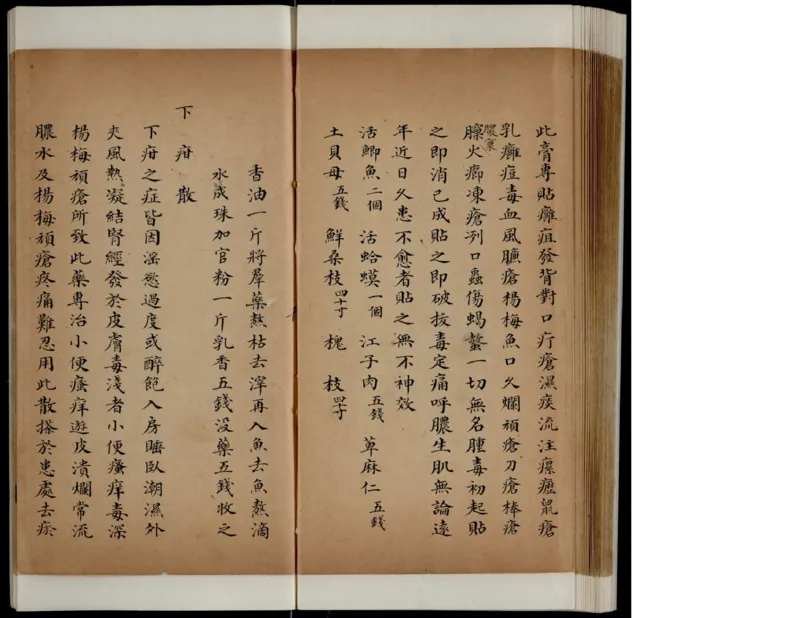 此膏專貼癰疽發背對口疔瘡濕痰流注瘰癧鼠瘡
乳癰痘毒血風臁瘡楊梅魚口久爛頑瘡刀瘡棒瘡
臁火癤凍瘡冽口蟲傷蝎螫一切無名腫毒初起貼
膿裏
之即消已成貼之即破拔毒定痛呼膿生肌無論遠
年近日久患不愈者貼之無不神效
活鯽魚二個 活蛤蟆一個 江子肉五錢 萆麻仁五錢
土貝母五錢 鮮桑枝四十寸 槐枝四十寸
香油一斤將羣藥熬枯去滓再入魚去魚熬滴
水成珠加官粉一斤乳香五錢没藥五錢收之
下疳散
下疳之症皆因滛慾過度或醉飽入房睡臥潮濕外
夾風熱凝結腎經發於皮膚毒淺者小便癢痒毒深
楊梅頑瘡所致此藥專治小便癢痒遊皮潰爛常流
膿水及楊梅頑瘡疼痛難忍用此散搽於患處去瘀